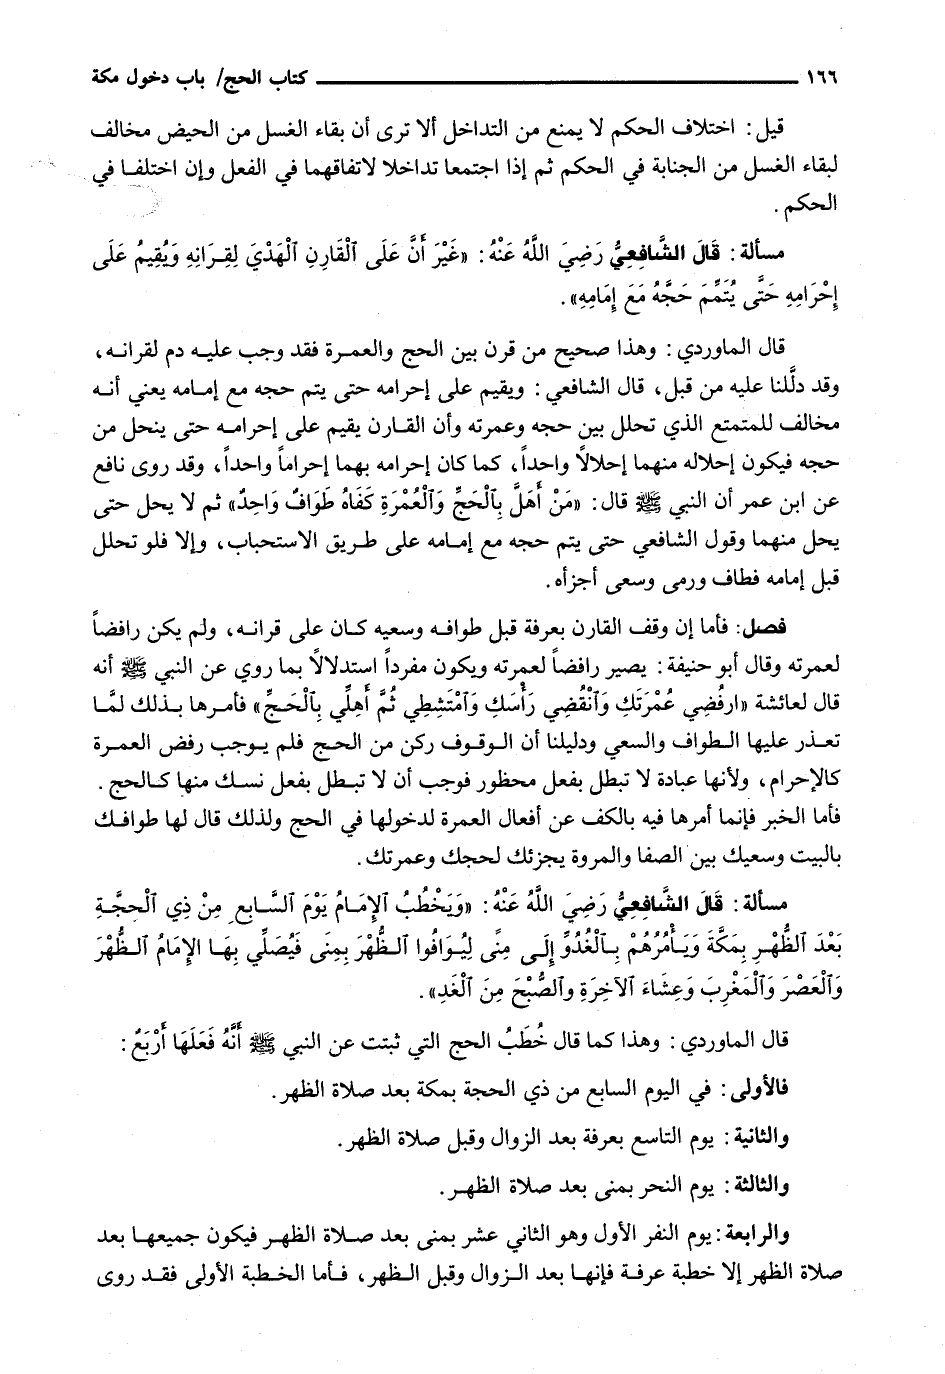 ١٦٦ ــــــــــــــــــــ كتاب الحج/ باب دخول مكة
قيل: اختلاف الحكم لا يمنع من التداخل ألا ترى أن بقاء الغسل من الحيض مخالف
لبقاء الغسل من الجنابة في الحكم ثم إذا اجتمعا تداخلا لاتفاقهما في الفعل وإن اختلفا في
الحكم.
مسألة: قَالَ الشَّافِعِيُّ رَضِيَ اللَّهُ عَنْهُ: «غَيْرَ أَنَّ عَلَى ٱلْقَارِنِ ٱلْهَدْيَ لِقِرَانِهِ وَيُقِيمُ عَلَى
إِحْرَامِهِ حَتَّى يُتَمِّمَ حَجَّهُ مَعَ إِمَامِهِ».
قال الماوردي: وهذا صحيح من قرن بين الحج والعمرة فقد وجب عليه دم لقرانه،
وقد دلَّلنا عليه من قبل، قال الشافعي: ويقيم على إحرامه حتى يتم حجه مع إمامه يعني أنه
مخالف للمتمتع الذي تحلل بين حجه وعمرته وأن القارن يقيم على إحرامه حتى ينحل من
حجه فيكون إحلاله منهما إحلالاً واحداً، كما كان إحرامه بهما إحراماً واحداً، وقد روى نافع
عن ابن عمر أن النبي ﷺ قال: «مَنْ أَهَلَّ بِٱلْحَجِّ وَٱلْعُمْرَةِ كَفَاهُ طَوَافٌ وَاحِدٌ» ثم لا يحل حتى
يحل منهما وقول الشافعي حتى يتم حجه مع إمامه على طريق الاستحباب، وإلا فلو تحلل
قبل إمامه فطاف ورمى وسعى أجزأه.
فصل: فأما إن وقف القارن بعرفة قبل طوافه وسعيه كان على قرانه، ولم يكن رافضاً
لعمرته وقال أبو حنيفة: يصير رافضاً لعمرته ويكون مفرداً استدلالاً بما روي عن النبي ﷺ أنه
قال لعائشة «ارفُضِي عُمْرَتَكِ وَٱنْقُضِي رَأْسَكِ وَٱمْتَشِطِي ثُمَّ أَهِلِّي بِٱلْحَجِّ» فأمرها بذلك لمَّا
تعذر عليها الطواف والسعي ودليلنا أن الوقوف ركن من الحج فلم يوجب رفض العمرة
كالإحرام، ولأنها عبادة لا تبطل بفعل محظور فوجب أن لا تبطل بفعل نسك منها كالحج.
فأما الخبر فإنما أمرها فيه بالكف عن أفعال العمرة لدخولها في الحج ولذلك قال لها طوافك
بالبيت وسعيك بين الصفا والمروة يجزئك لحجك وعمرتك.
مسألة: قَالَ الشَّافِعِيُّ رَضِيَ اللَّهُ عَنْهُ: «وَيَخْطُبُ ٱلإِمَامُ يَوْمَ ٱلسَّابِعِ مِنْ ذِي ٱلْحِجَّةِ
بَعْدَ ٱلظُّهْرِ بِمَكَّةَ وَيَأْمُرُهُمْ بِٱلْغُدُوِّ إِلَى مِنًى لِيُوَافُوا ٱلظُّهْرَ بِمِنَى فَيُصَلِّي بِهَا الإِمَامُ ٱلظُّهْرَ
وَٱلْعَصْرَ وَٱلْمَغْرِبَ وَعِشَاءَ ٱلآخِرَةِ وٱلصُّبْحَ مِنَ ٱلْغَدِ».
قال الماوردي: وهذا كما قال خُطَبُ الحج التي ثبتت عن النبي ﷺ أَنَّهُ فَعَلَهَا أَرْبَعٌ:
فالأولى: في اليوم السابع من ذي الحجة بمكة بعد صلاة الظهر.
والثانية: يوم التاسع بعرفة بعد الزوال وقبل صلاة الظهر.
والثالثة: يوم النحر بمنى بعد صلاة الظهر.
والرابعة: يوم النفر الأول وهو الثاني عشر بمنى بعد صلاة الظهر فيكون جميعها بعد
صلاة الظهر إلا خطبة عرفة فإنها بعد الزوال وقبل الظهر، فأما الخطبة الأولى فقد روى